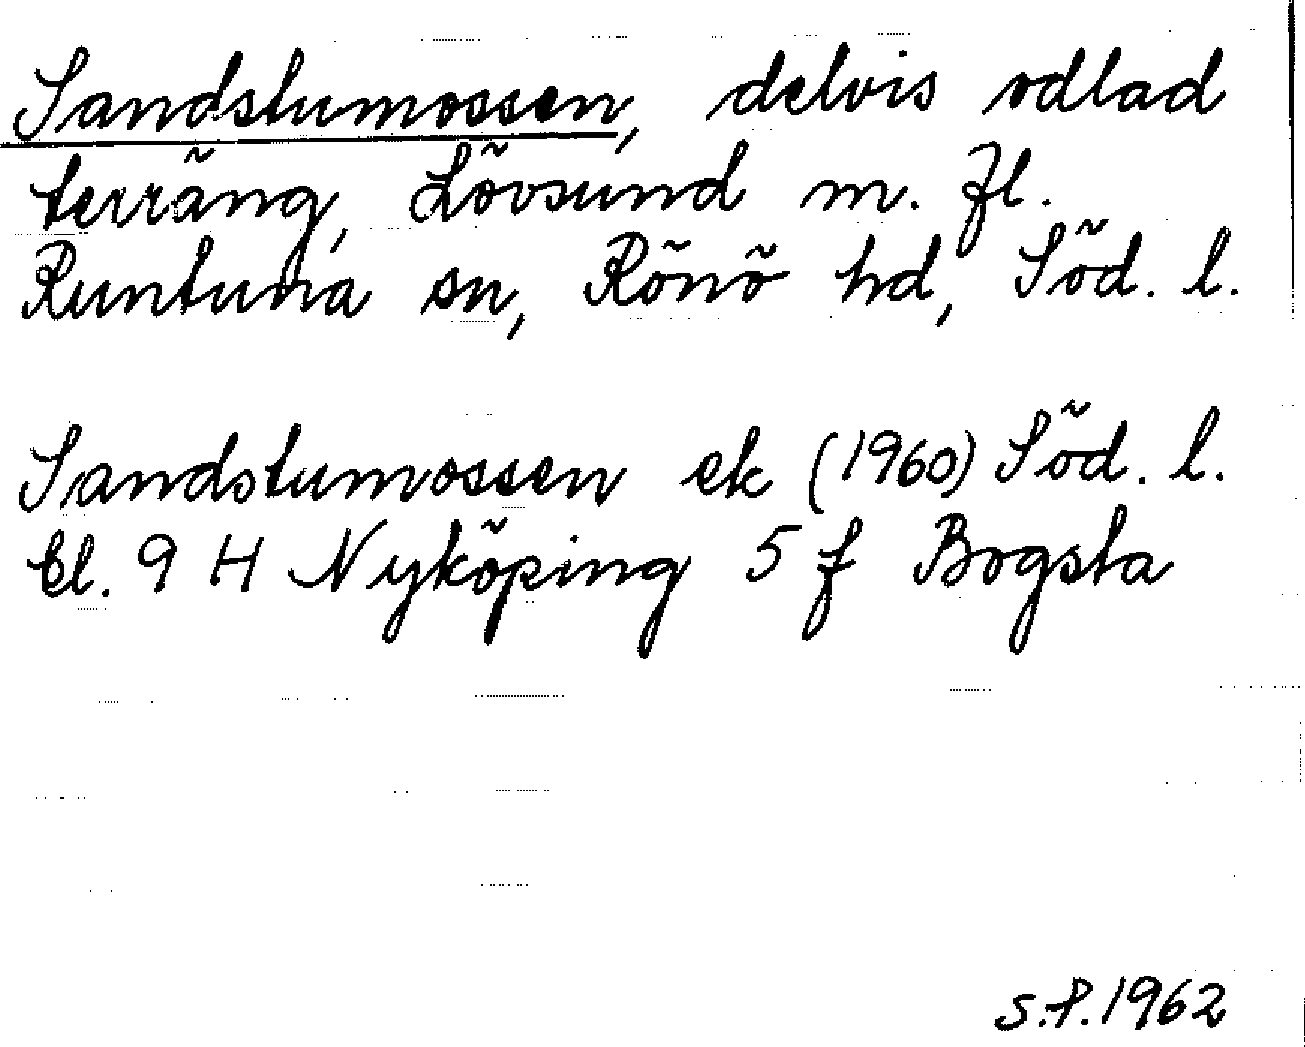 Sandstumossen, delvis odlad
terräng, Lövsund m. fl.
Runtuna sn, Rönö hd, Söd. l.
Sandstumossen ek (1960) Söd. l.
bl. 9 H Nyköping 5 f Bogsta
S.P. 1962